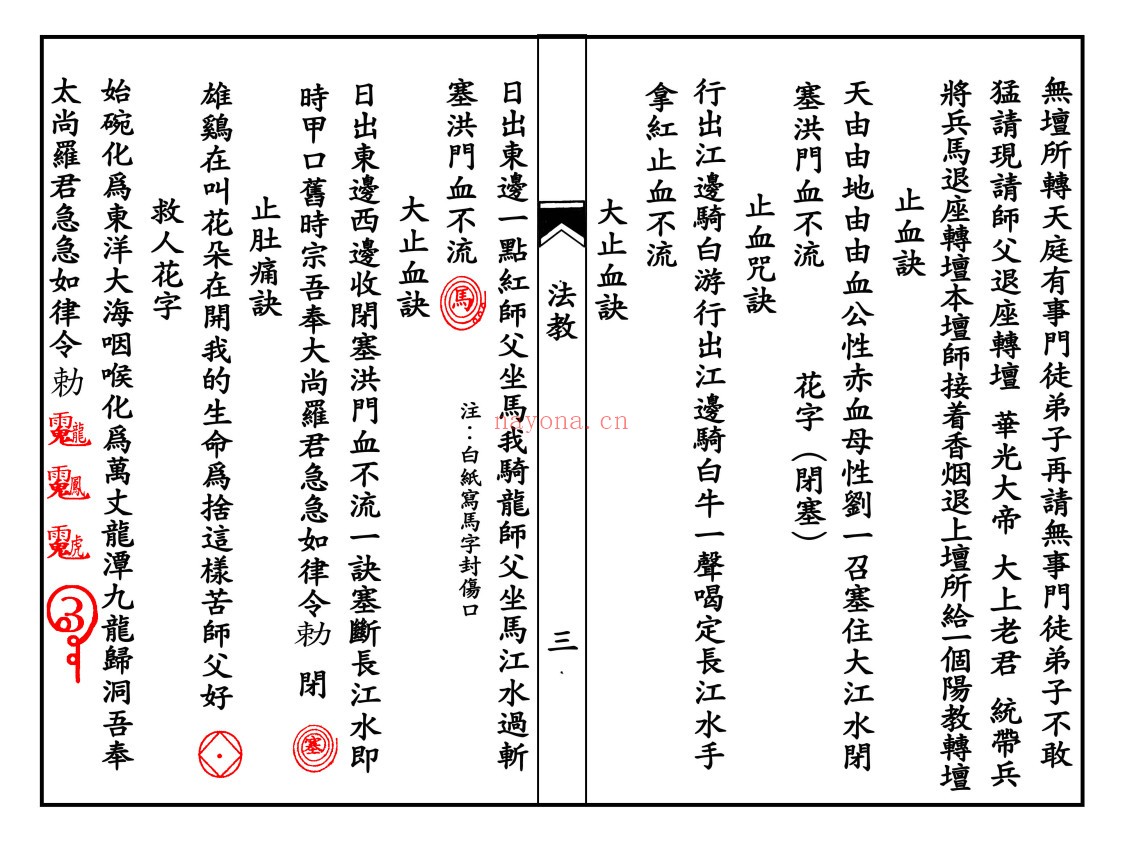 無壇所轉天庭有事門徒弟子再請無事門徒弟子不敢
猛請現請師父退座轉壇 華光大帝 大上老君 統帶兵
將兵馬退座轉壇本壇師接着香烟退上壇所給一個陽教轉壇
止血訣
天由由地由由血公性赤血母性劉一召塞住大江水閉
塞洪門血不流 花字（閉塞）
止血咒訣
行出江邊騎白游行出江邊騎白牛一聲喝定長江水手
拿紅止血不流
大止血訣
法教
三
日出東邊一點紅師父坐馬我騎龍師父坐馬江水過斬
塞洪門血不流 馬 注：白紙寫馬字封傷口
大止血訣
日出東邊西邊收閉塞洪門血不流一訣塞斷長江水即
時甲口舊時宗吾奉大尚羅君急急如律令勅 閉 塞
止肚痛訣
雄鷄在叫花朵在開我的生命爲捨這樣苦師父好
救人花字
始碗化爲東洋大海咽喉化爲萬丈龍潭九龍歸洞吾奉
太尚羅君急急如律令勅
nayona.cn